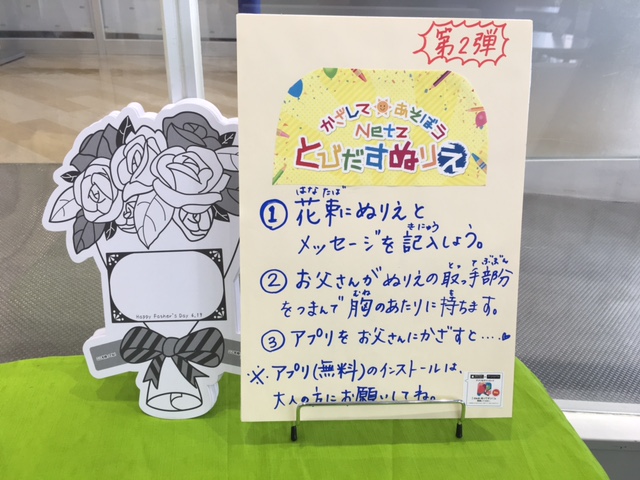 第2弾
かざして あそぼう
Netz
とびだすぬりえ
はなたば
① 花束にぬりえと
きにゅう
メッセージを記入しよう。
とってぶぶん
② お父さんがぬりえの取っ手部分
むねも
をつまんで胸のあたりに持ちます。
③ アプリをお父さんにかざすと……♥
※アプリ(無料)のインストールは、
大人の方にお願いしてね。
Happy Father's Day 6.19